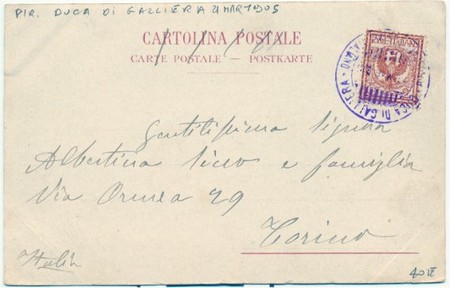 PIR. DUCA DI GALLIERA 21 MAR 1905
CARTOLINA POSTALE
CARTE POSTALE - POSTKARTE
DUCA DI GALLIERA
Gentilissima Signora
Albertina e famiglia
Via Ormea 29
Torino
Italia